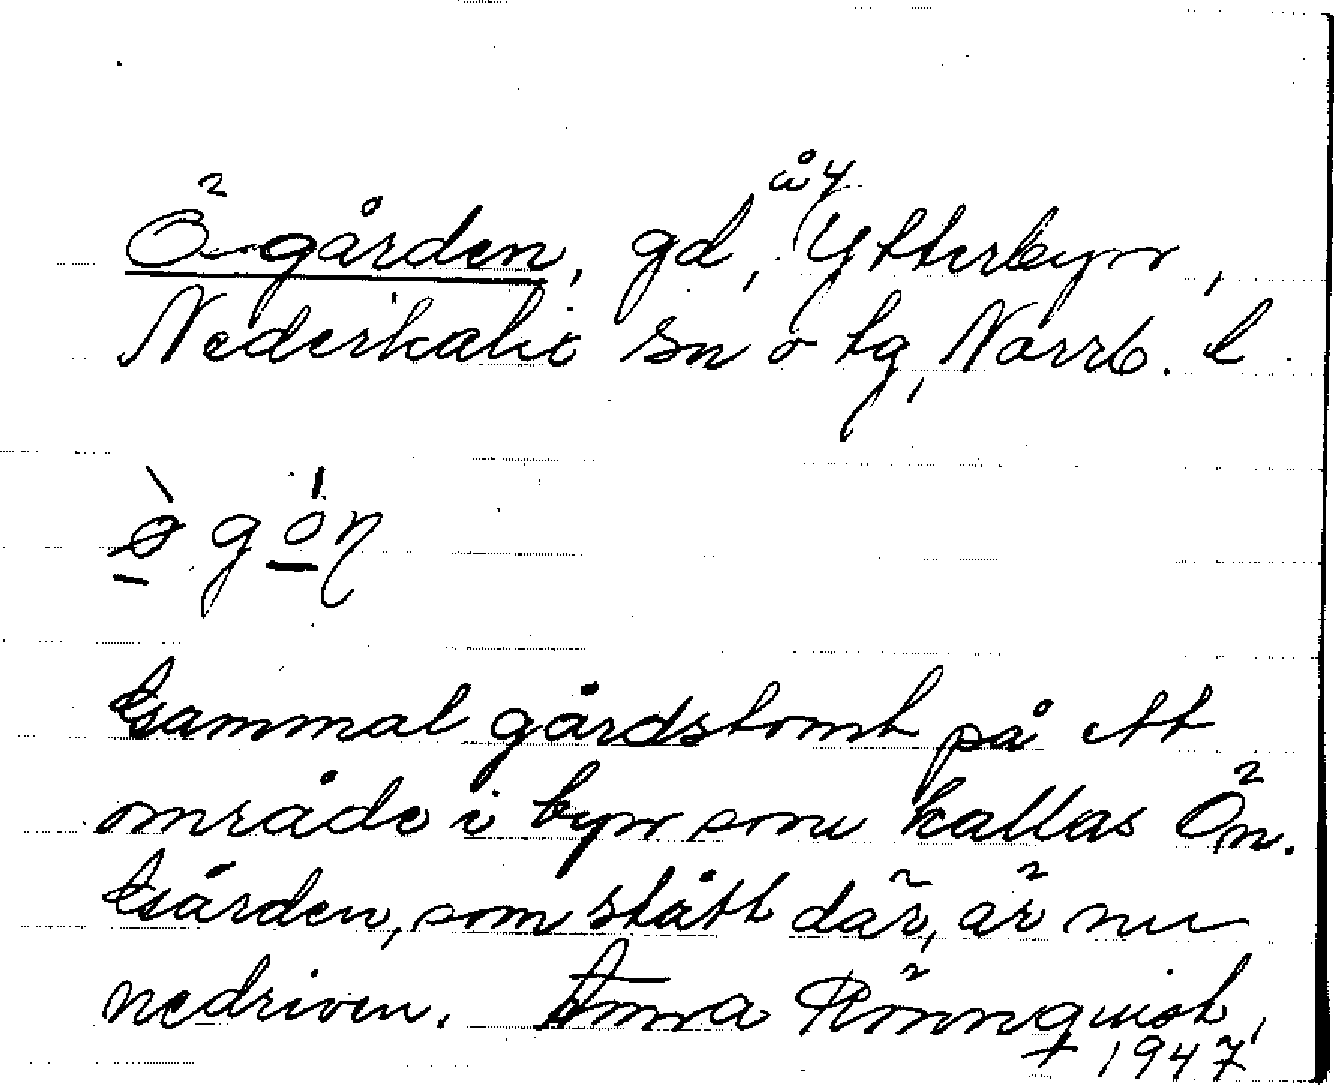 Ö-gården, gd, å y Ytterbyn,
Nederkalix sn o tg, Norrb. l.
ø̀ gón
Gammal gårdstomt på ett
område i byn som kallas Ön.
Gården, som stått där, är nu
nedriven. Anna Rönnquist,
† 1947